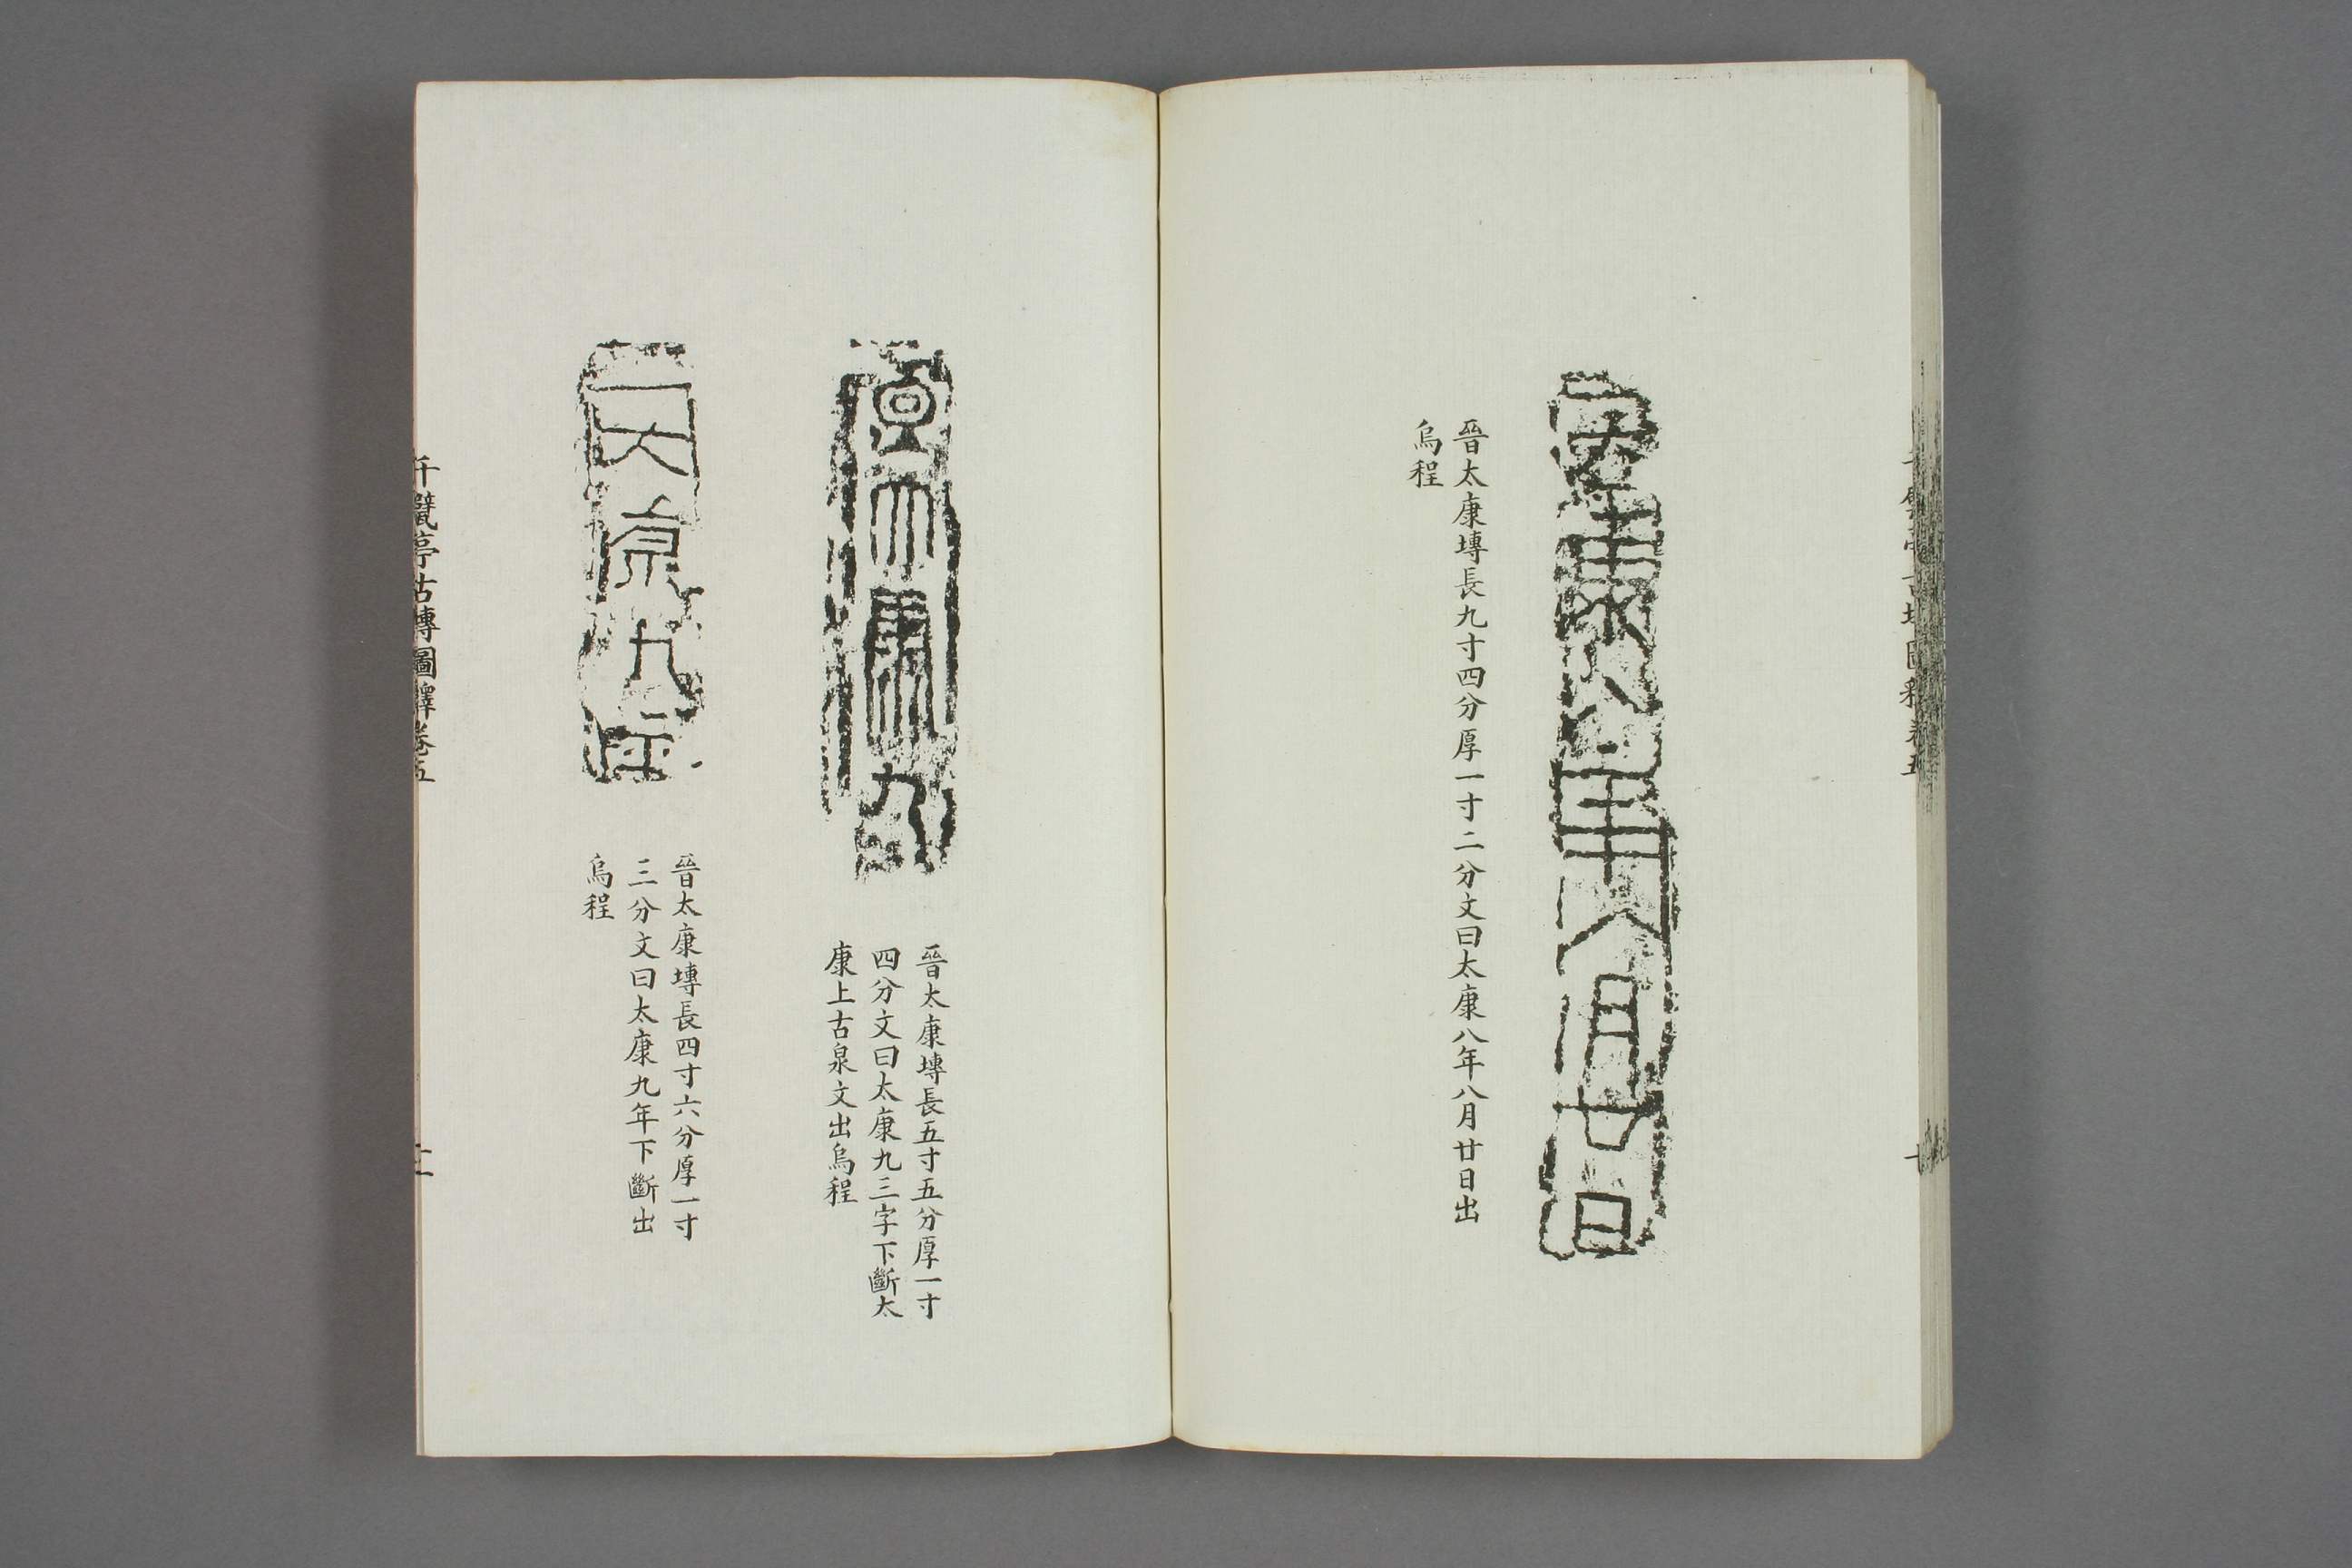 太康八年八月廿日
晉太康塼長九寸四分厚一寸二分文曰太康八年八月廿日出
烏程
太康九
晉太康塼長五寸五分厚一寸
四分文曰太康九三字下斷太
康上古泉文出烏程
太康九年
晉太康塼長四寸六分厚一寸
三分文曰太康九年下斷出
烏程
千甓亭古塼圖釋卷五